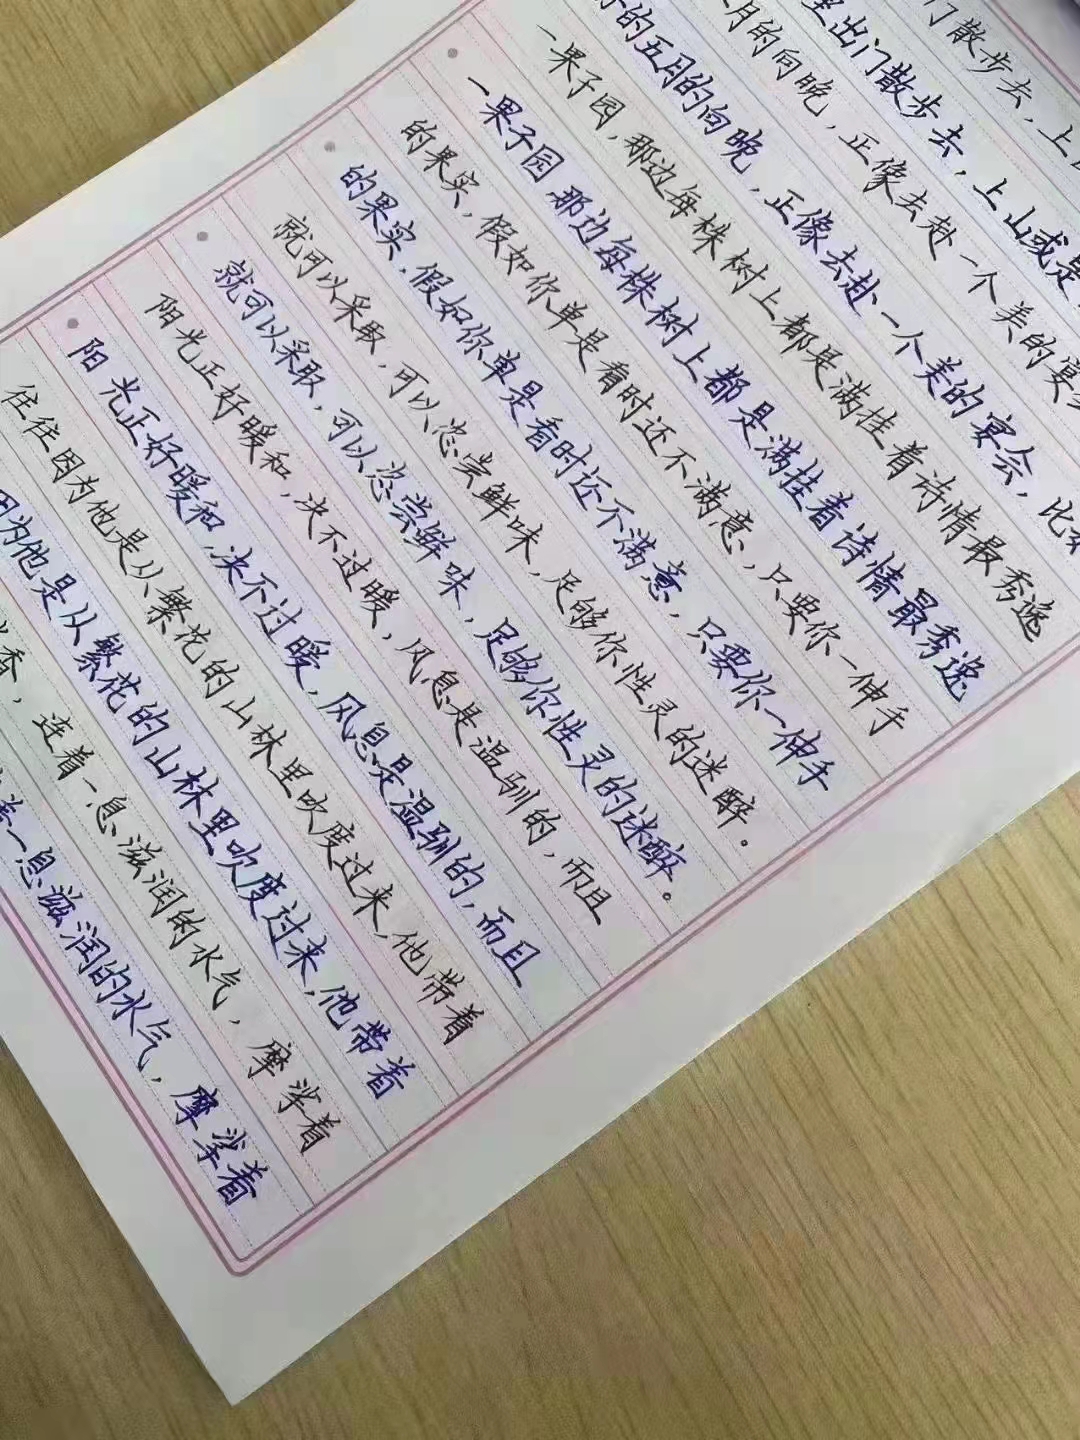 门散步去，上
里出门散步去，上山或是
月的向晚，正像去赴一个美的宴
的五月的向晚，正像去赴一个美的宴会，比如
一果子园，那边每株树上都是满挂着诗情最秀逸
一果子园，那边每株树上都是满挂着诗情最秀逸
的果实，假如你单是看时还不满意，只要你一伸手
的果实，假如你单是看时还不满意，只要你一伸手
就可以采取，可以恣尝鲜味，足够你性灵的迷醉。
就可以采取，可以恣尝鲜味，足够你性灵的迷醉。
阳光正好暖和，决不过暖，风息是温驯的，而且
阳光正好暖和，决不过暖，风息是温驯的，而且
往往因为他是从繁花的山林里吹度过来，他带着
因为他是从繁花的山林里吹度过来，他带着
香，连着一息滋润的水气，摩挲着
着一息滋润的水气，摩挲着